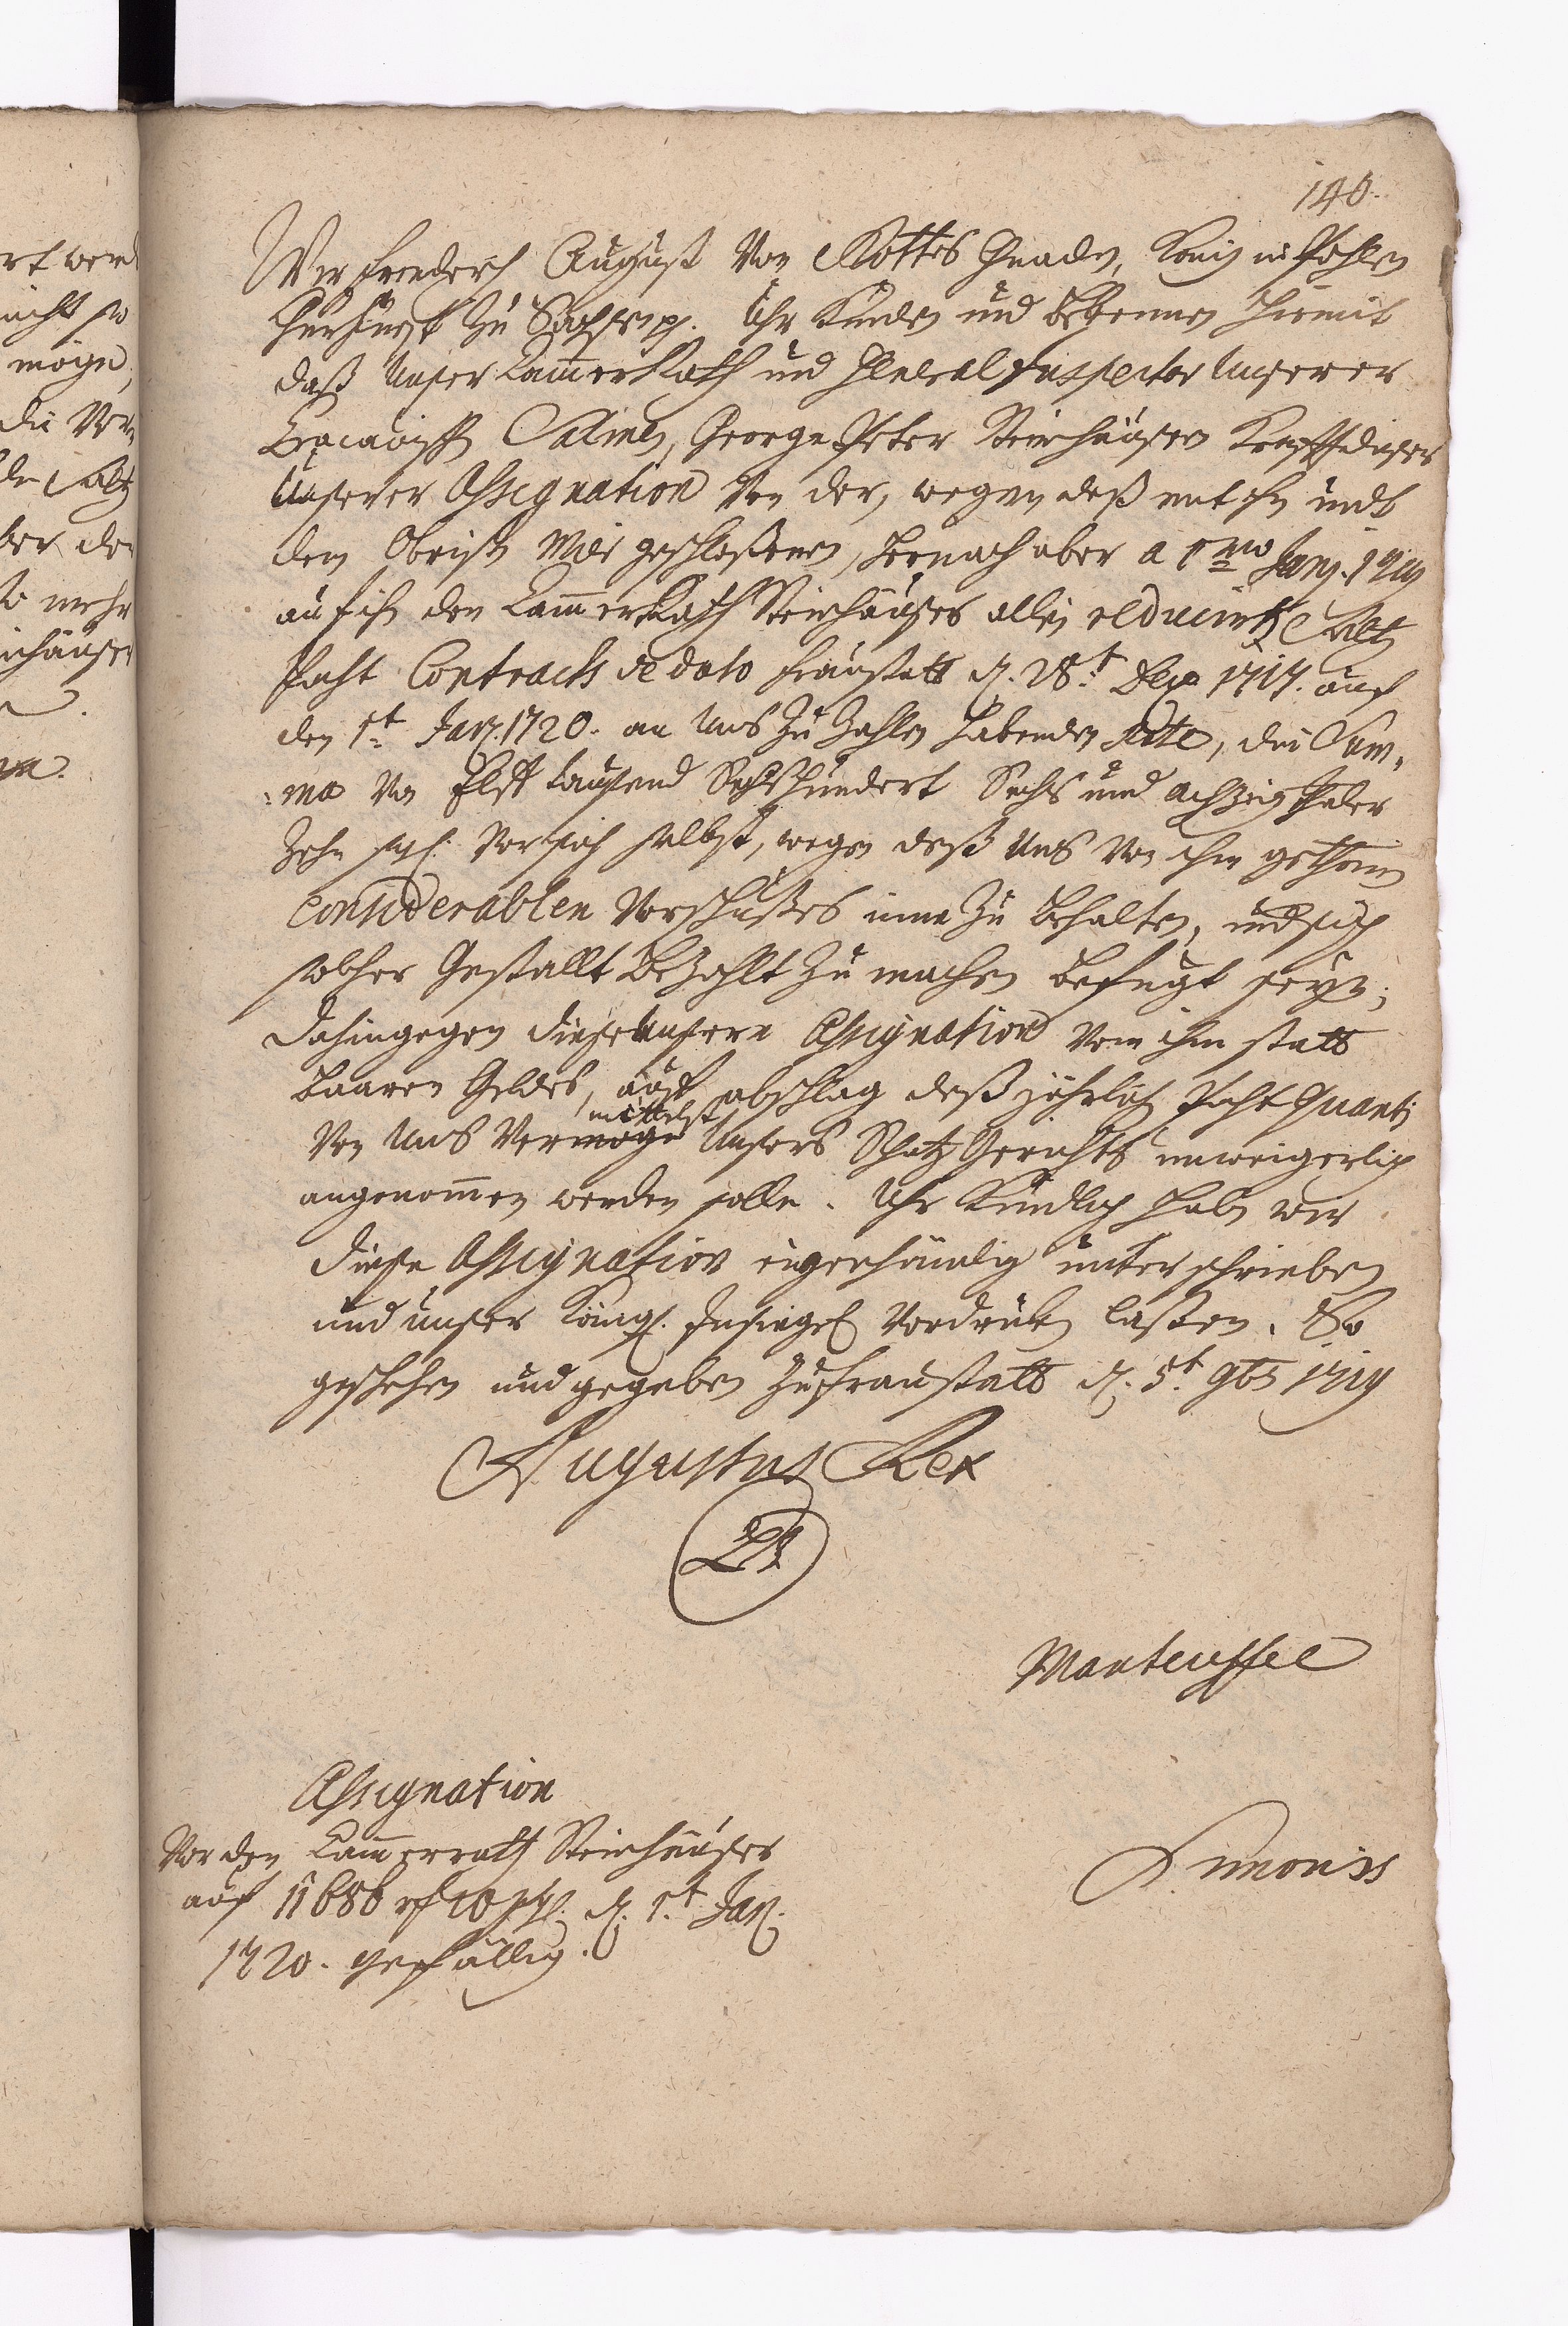 140.
Wir Friederich August Von Gottes Gnaden, König in Pohlen
ChurFürst zu Sachsen p. Uhr Kunden und Bekennen hiermit
daß Unser CammerRath und General Inspector Unserer
Cracauisch Salinen, George Peter Steinhäuser Krafft dieser
Unserer Assignation Von der, wegen deß mit ihn und
dem Obrist geschloßenen, hernach aber a 1mo Jan. 1719
auf ihn den CammerRath Steinhäuser allein reducirten Saltz
Pacht Contracts de dato Fraustatt d. 28t Dec 1717. auf
den 1t Jan. 1720. an Uns zu zahlen habenden rate, die Sum-
-ma Von Elff tausend Sechshundert Sechs und achzig thaler
Zehn ggl. vor sich selbst, wegen deß Uns Von ihm gethanen
considerablen Vorschußes inne zu behalten, und sich
solcher Gestallt bezahlt zu machen befugt seyn;
Dahingegen diese Unsere Assignation Von ihm statt
baaren Geldes, auf abschlag deß jährlich Pacht quanti
mittelst
Von Uns Vermöge Unsers Schatz Gerichts unweigerlich
angenommen werden solle. Uhr Kundlich haben wir
diese Assignation eigenhändig unterschrieben
und unser Königl. Insiegel Vordrucken laßen. So
geschehen und gegeben zu Fraustatt d. 5t 9br 1719
Augustus Rex
LS
Manteuffel
Assignation
Vor den Cammerrath Steinhäuser
auf 11686 rl 10 ggl. d. 1t Jan.
1720. gefällig.
Simonis
rt werd
nicht so
möge,
die Ver
de Saltz
ber de
to mehr
inhäuser